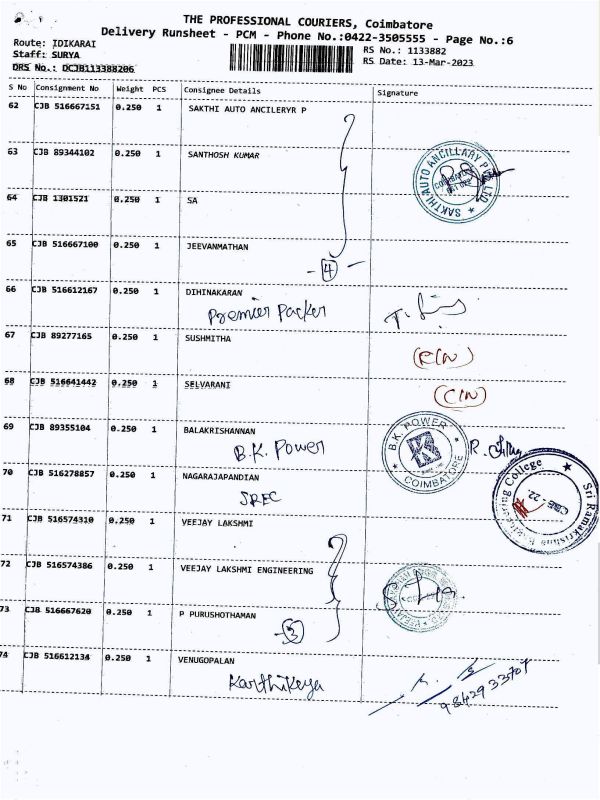 THE PROFESSIONAL COURIERS, Coimbatore
Delivery Runsheet - PCM - Phone No.:0422-3505555 - Page No.:6
Route: IDIKARAI
Staff: SURYA
DRS No.: DCJB113388206
RS No.: 1133882
RS Date: 13-Mar-2023
S No Consignment No Weight PCS Consignee Details Signature
62 CJB 516667151 0.250 1 SAKTHI AUTO ANCILERYR P
63 CJB 89344102 0.250 1 SANTHOSH KUMAR
SAKTHI AUTO ANCILLARY PVT LTD
64 CJB 1301521 0.250 1 SA
65 CJB 516667100 0.250 1 JEEVANMATHAN
- 4 -
66 CJB 516612167 0.250 1 DIHINAKARAN
Premier Packer
67 CJB 89277165 0.250 1 SUSHMITHA
68 CJB 516641442 0.250 1 SELVARANI
69 CJB 89355104 0.250 1 BALAKRISHANNAN
B.K. Power
B.K. POWER
COIMBATORE
70 CJB 516278857 0.250 1 NAGARAJAPANDIAN
SREC
Sri Ramakrishna Engineering College
CBE - 22.
71 CJB 516574310 0.250 1 VEEJAY LAKSHMI
72 CJB 516574386 0.250 1 VEEJAY LAKSHMI ENGINEERING
73 CJB 516667620 0.250 1 P PURUSHOTHAMAN
- 3
74 CJB 516612134 0.250 1 VENUGOPALAN
Karthikeya